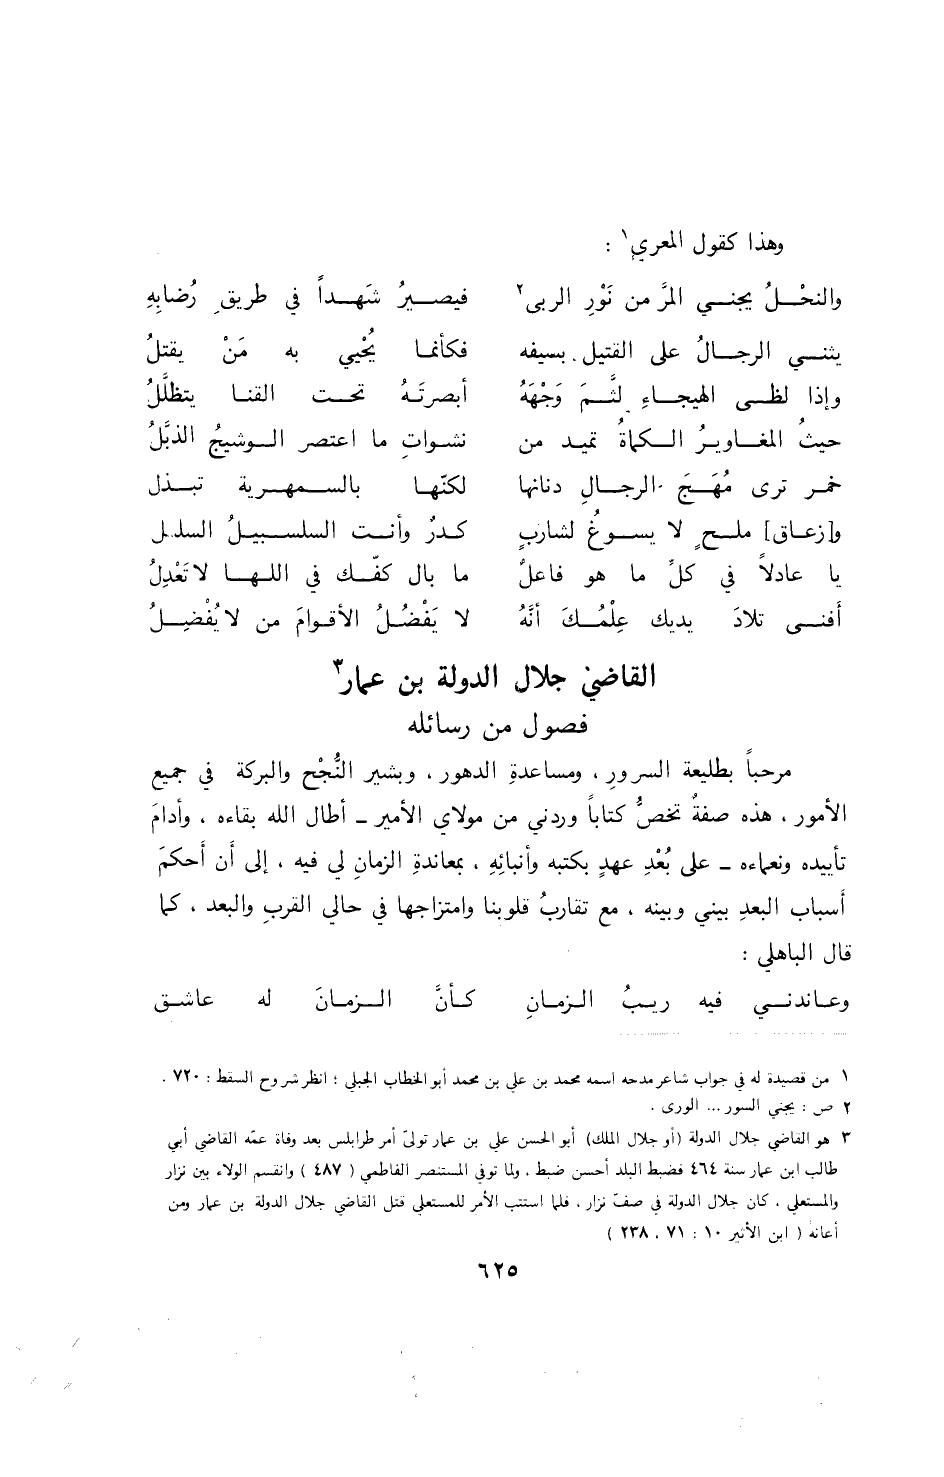 وهذا كقول المعري١ :
والنحْلُ يجني المرَّ من نَوْرِ الربى٢ فيصيرُ شَهداً في طريقِ رُضابِهِ
يثني الرجالُ على القتيل بسيفه فكأنما يُحْيي به مَنْ يقتلُ
وإذا لظى الهيجاءِ لثَّمَ وَجْهَهُ أبصرتَهُ تحت القنا يتظلَّلُ
حيثُ المغاويرُ الكماةُ تميد من نشواتِ ما اعتصر الوشيجُ الذبَّلُ
خمر ترى مُهَجَ الرجالِ دنانها لكنّها بالسمهرية تبذل
و[زعاق] ملحٍ لا يسوغُ لشاربٍ كدرٌ وأنت السلسبيلُ السلسل
يا عادلاً في كلّ ما هو فاعلٌ ما بال كفّك في اللها لا تَعْدِلُ
أفنى تلادَ يديك عِلْمُكَ أنَّهُ لا يَفْضُلُ الأقوامَ من لا يُفْضِلُ
القاضي جلال الدولة بن عمار٣
فصول من رسائله
مرحباً بطليعة السرورِ ، ومساعدةِ الدهور ، وبشيرِ النُّجْح والبركة في جميع
الأمور ، هذه صفةٌ تخصُّ كتاباً وردني من مولاي الأمير ــ أطال الله بقاءه ، وأدامَ
تأييده ونعماءه ــ على بُعْدِ عهدٍ بكتبه وأنبائِهِ ، بمعاندةِ الزمانِ لي فيه ، إلى أن أحكمَ
أسباب البعدِ بيني وبينه ، مع تقاربُ قلوبنا وامتزاجها في حالي القربِ والبعد ، كما
قال الباهلي :
وعاندني فيه ريبُ الزمانِ كأنَّ الزمانَ له عاشق
١ من قصيدة له في جواب شاعر مدحه اسمه محمد بن علي بن محمد أبو الخطاب الجبلي ؛ انظر شروح السقط : ٧٢٠ .
٢ ص : يجني السور ... الورى .
٣ هو القاضي جلال الدولة (أو جلال الملك) أبو الحسن علي بن عمار تولىّ أمر طرابلس بعد وفاة عمّه القاضي أبي
طالب ابن عمار سنة ٤٦٤ فضبط البلد أحسن ضبط ، ولما توفي المستنصر الفاطمي ( ٤٨٧ ) وانقسم الولاء بين نزار
والمستعلي ، كان جلال الدولة في صفّ نزار ، فلما استتب الأمر للمستعلي قتل القاضي جلال الدولة بن عمار ومن
أعانه ( ابن الأثير ١٠ : ٧١ ، ٢٣٨ )
٦٢٥